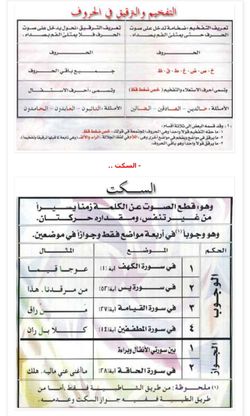 التفخيم والترقيق في الحروف
تعريف التفخيم: ضخامة تدخل على صوت الحرف حتى يمتلئ الفم بصداه.
تعريف الترقيق: نحول يدخل على صوت الحرف فلا يمتلئ الفم بصداه.
الحروف
الحروف
خ - ص - ض - غ - ط - ق - ظ
جميع باقي الحروف
وتسمى: أحرف الاستفال
- السكت ..
السكت
وهو: قطع الصوت عن الكلمة زمناً يسيراً
من غير تنفس، ومقداره حركتان.
وهو وجوباً (١) في أربعة مواضع فقط وجوازاً في موضعين.
الحكم
الموضع
المثال
الوجوب
١ في سورة الكهف آية (١) عوجا قيما
٢ في سورة يس آية (٥٢) من مرقدنا. هذا
٣ في سورة القيامة آية (٢٧) من راق
٤ في سورة المطففين آية (١٤) كلا بل ران
الجواز
١ بين سورتي الأنفال وبراءة
٢ في سورة الحاقة آية (٢٨) ماأغنى عني ماليه. هلك
(١) ملحوظة: من طريق الشاطبية فقط، أما من
طريق الطيبة ففيه جواز السكت وعدمه.